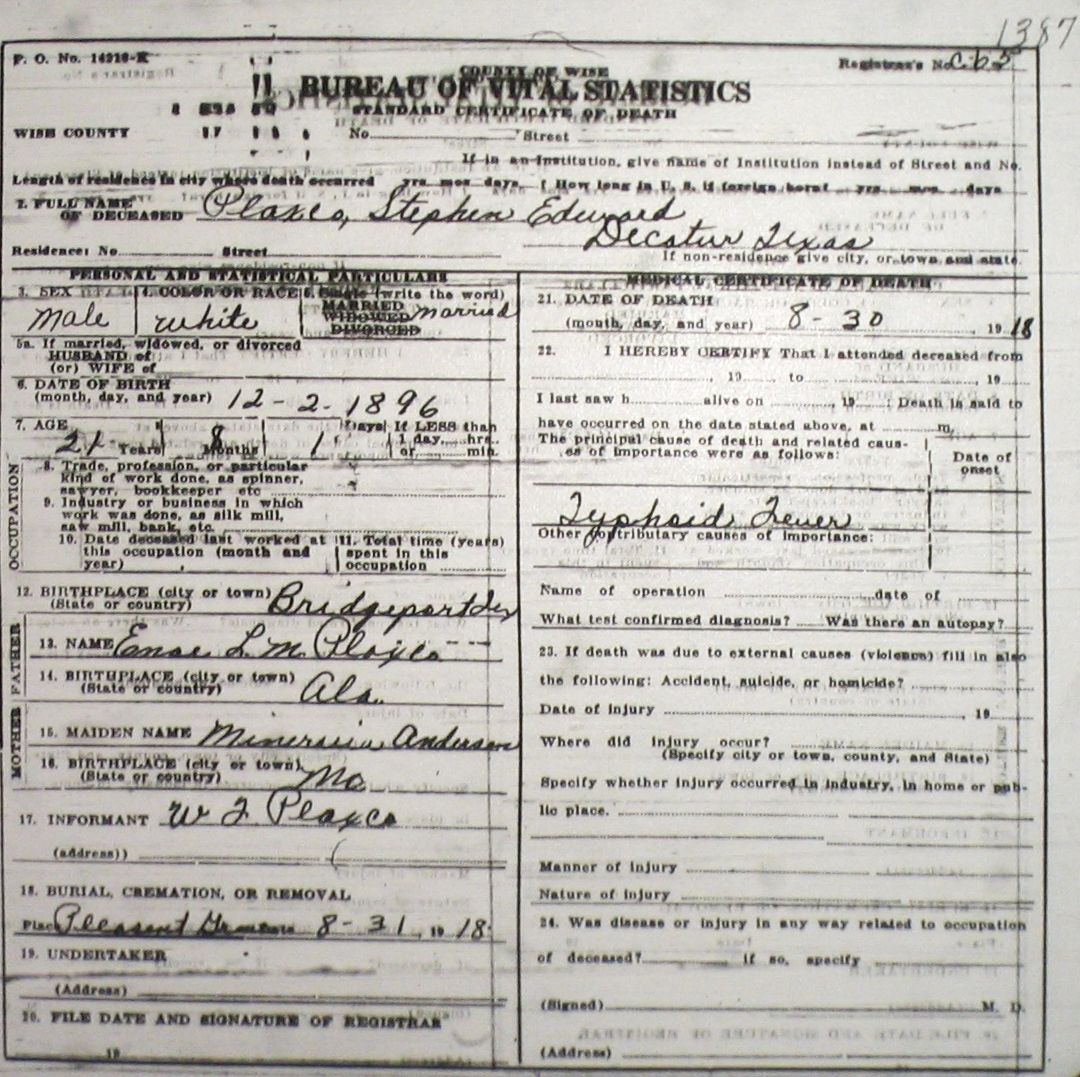 1387
F. O. No. 14216-K
Registrar's No. C65
COUNTY OF WISE
BUREAU OF VITAL STATISTICS
STANDARD CERTIFICATE OF DEATH
WISE COUNTY No Street
If in an Institution, give name of Institution instead of Street and No.
Length of residence in city where death occurred yrs mos days. How long in U. S. if foreign born? yrs mos days
2. FULL NAME OF DECEASED Plaxco, Stephen Edward
Decatur Texas
Residence: No Street If non-residence give city, or town and state.
PERSONAL AND STATISTICAL PARTICULARS
3. SEX Male
4. COLOR OR RACE White
5. Single (write the word) MARRIED WIDOWED DIVORCED married
5a. If married, widowed, or divorced
HUSBAND of
(or) WIFE of
6. DATE OF BIRTH
(month, day, and year) 12 - 2 - 1896
7. AGE 21 Years 8 Months 1 Days If LESS than
1 day hrs.
or min.
OCCUPATION
8. Trade, profession, or particular
kind of work done, as spinner,
sawyer, bookkeeper etc
9. Industry or business in which
work was done, as silk mill,
saw mill, bank, etc.
10. Date deceased last worked at
this occupation (month and
year)
11. Total time (years)
spent in this
occupation
12. BIRTHPLACE (city or town)
(State or country) Bridgeport Tex
FATHER
13. NAME L M Plaxco
14. BIRTHPLACE (city or town)
(State or country) Ala.
MOTHER
15. MAIDEN NAME Anderson
16. BIRTHPLACE (city or town)
(State or country) Mo
17. INFORMANT W F Plaxco
(address))
18. BURIAL, CREMATION, OR REMOVAL
Place Pleasant 8 - 31, 1918
19. UNDERTAKER
(Address)
20. FILE DATE AND SIGNATURE OF REGISTRAR
19
MEDICAL CERTIFICATE OF DEATH
21. DATE OF DEATH
(month, day, and year) 8 - 30, 1918
22. I HEREBY CERTIFY That I attended deceased from
, 19 to , 19
I last saw h alive on , 19 ; Death is said to
have occurred on the date stated above, at m.
The principal cause of death and related caus-
es of importance were as follows:
Date of
onset
Typhoid Fever
Other contributary causes of importance:
Name of operation date of
What test confirmed diagnosis? Was there an autopsy?
23. If death was due to external causes (violence) fill in also
the following: Accident, suicide, or homicide?
Date of injury , 19
Where did injury occur?
(Specify city or town, county, and State)
Specify whether injury occurred in industry, in home or pub-
lic place.
Manner of injury
Nature of injury
24. Was disease or injury in any way related to occupation
of deceased? if so, specify
(Signed) M. D.
(Address)